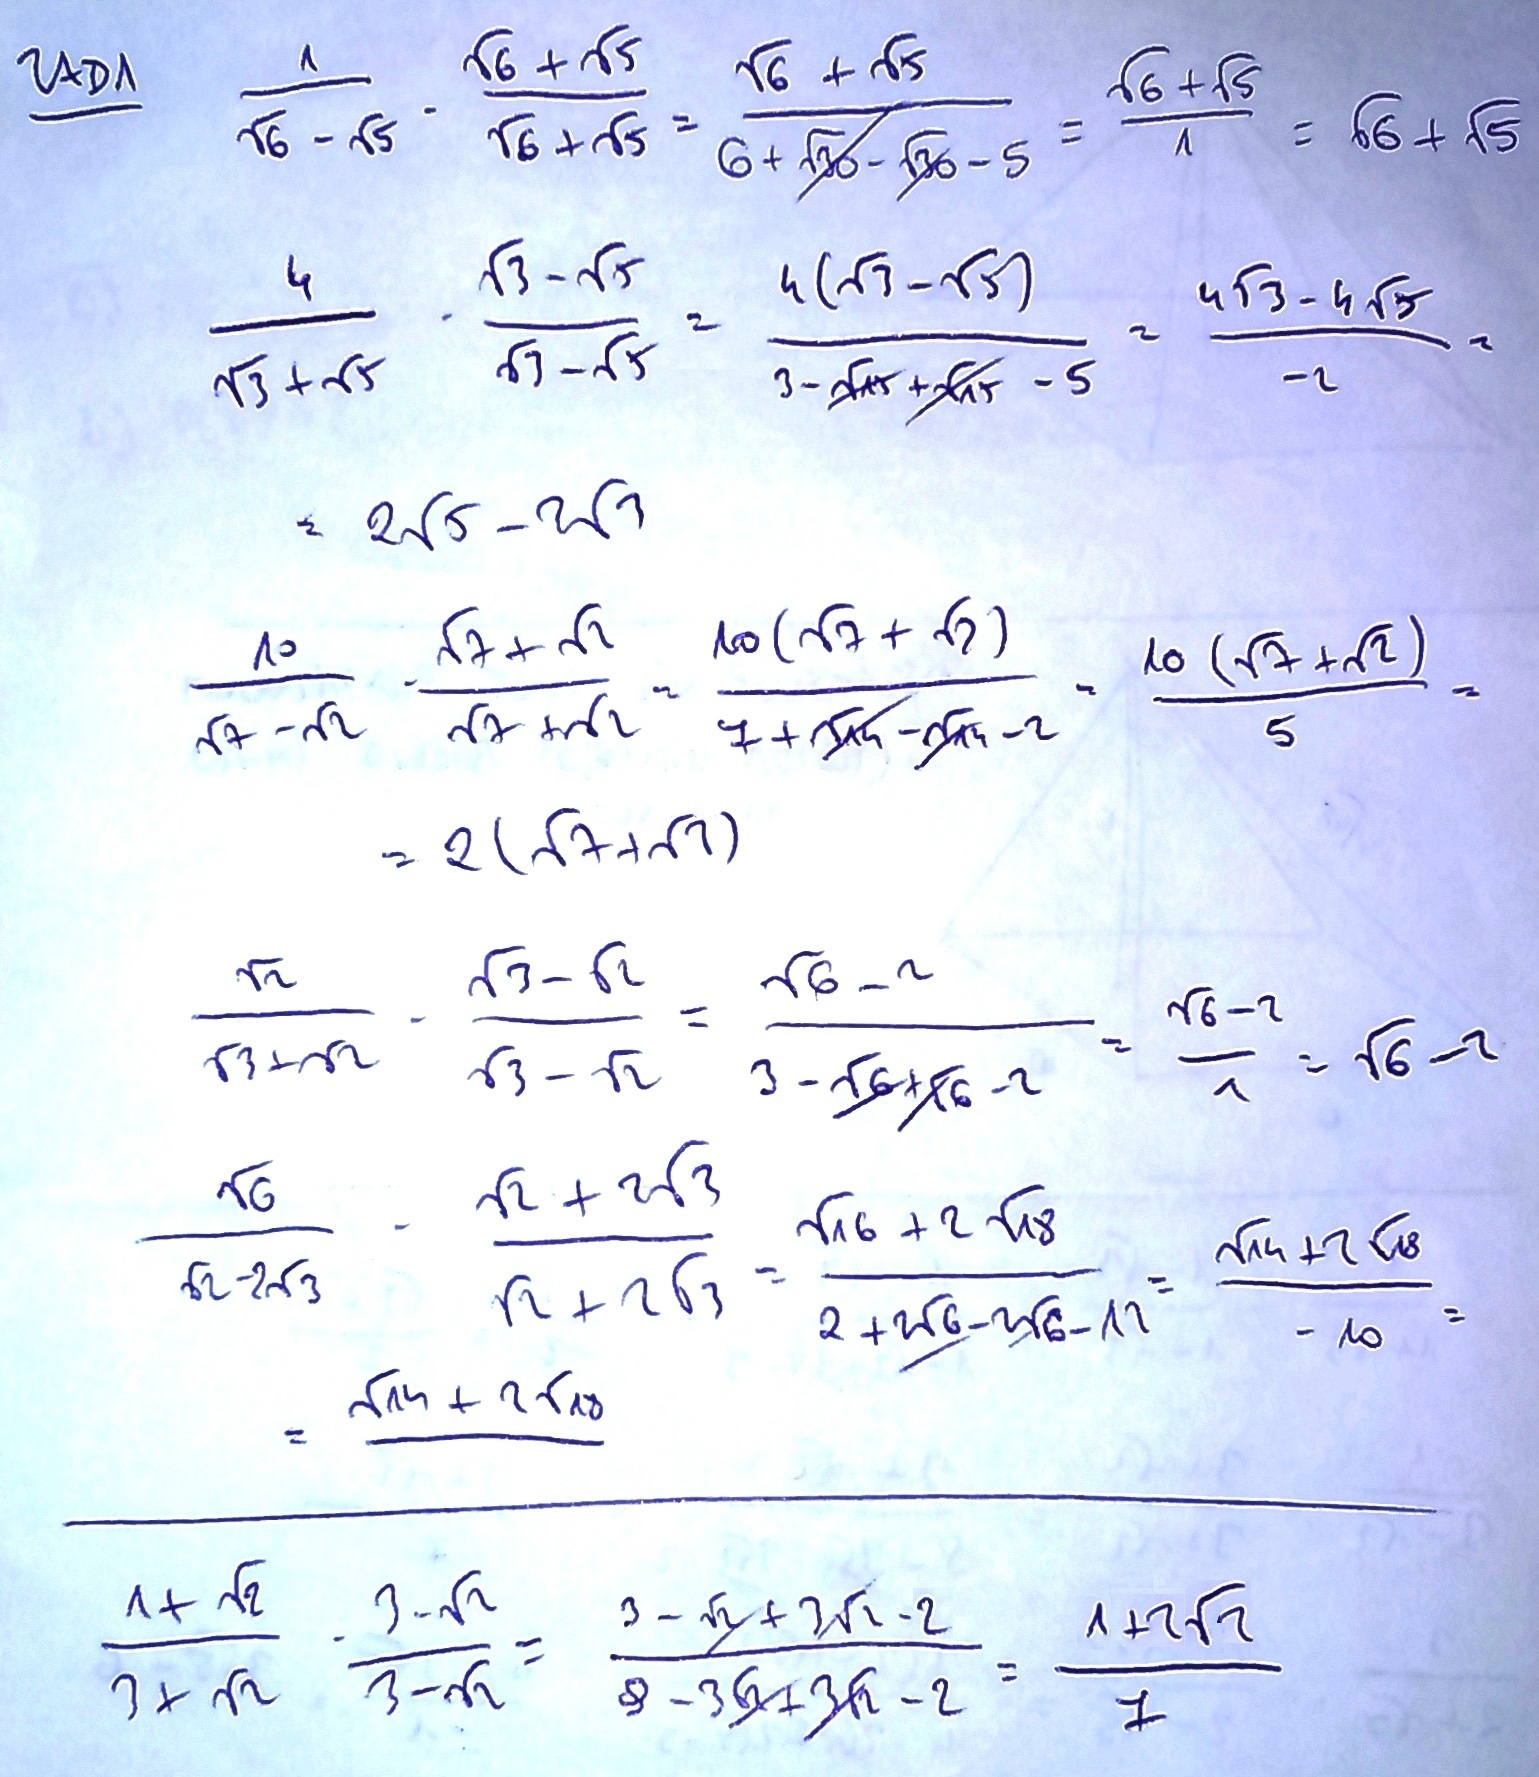 ZAD1 1/(√6 - √5) · (√6 + √5)/(√6 + √5) = (√6 + √5)/(6 + √30 - √30 - 5) = (√6 + √5)/1 = √6 + √5
4/(√3 + √5) · (√3 - √5)/(√3 - √5) = 4(√3 - √5)/(3 - √15 + √15 - 5) = (4√3 - 4√5)/-2 =
= 2√5 - 2√3
10/(√7 - √2) · (√7 + √2)/(√7 + √2) = 10(√7 + √2)/(7 + √14 - √14 - 2) = 10(√7 + √2)/5 =
= 2(√7 + √2)
√2/(√3 + √2) · (√3 - √2)/(√3 - √2) = (√6 - 2)/(3 - √6 + √6 - 2) = (√6 - 2)/1 = √6 - 2
√6/(√2 - 2√3) · (√2 + 2√3)/(√2 + 2√3) = (√16 + 2√18)/(2 + 2√6 - 2√6 - 12) = (√14 + 2√18)/-10 =
= √14 + 2√18
(1 + √2)/(3 + √2) · (3 - √2)/(3 - √2) = (3 - √2 + 3√2 - 2)/(9 - 3√2 + 3√2 - 2) = (1 + 2√2)/7